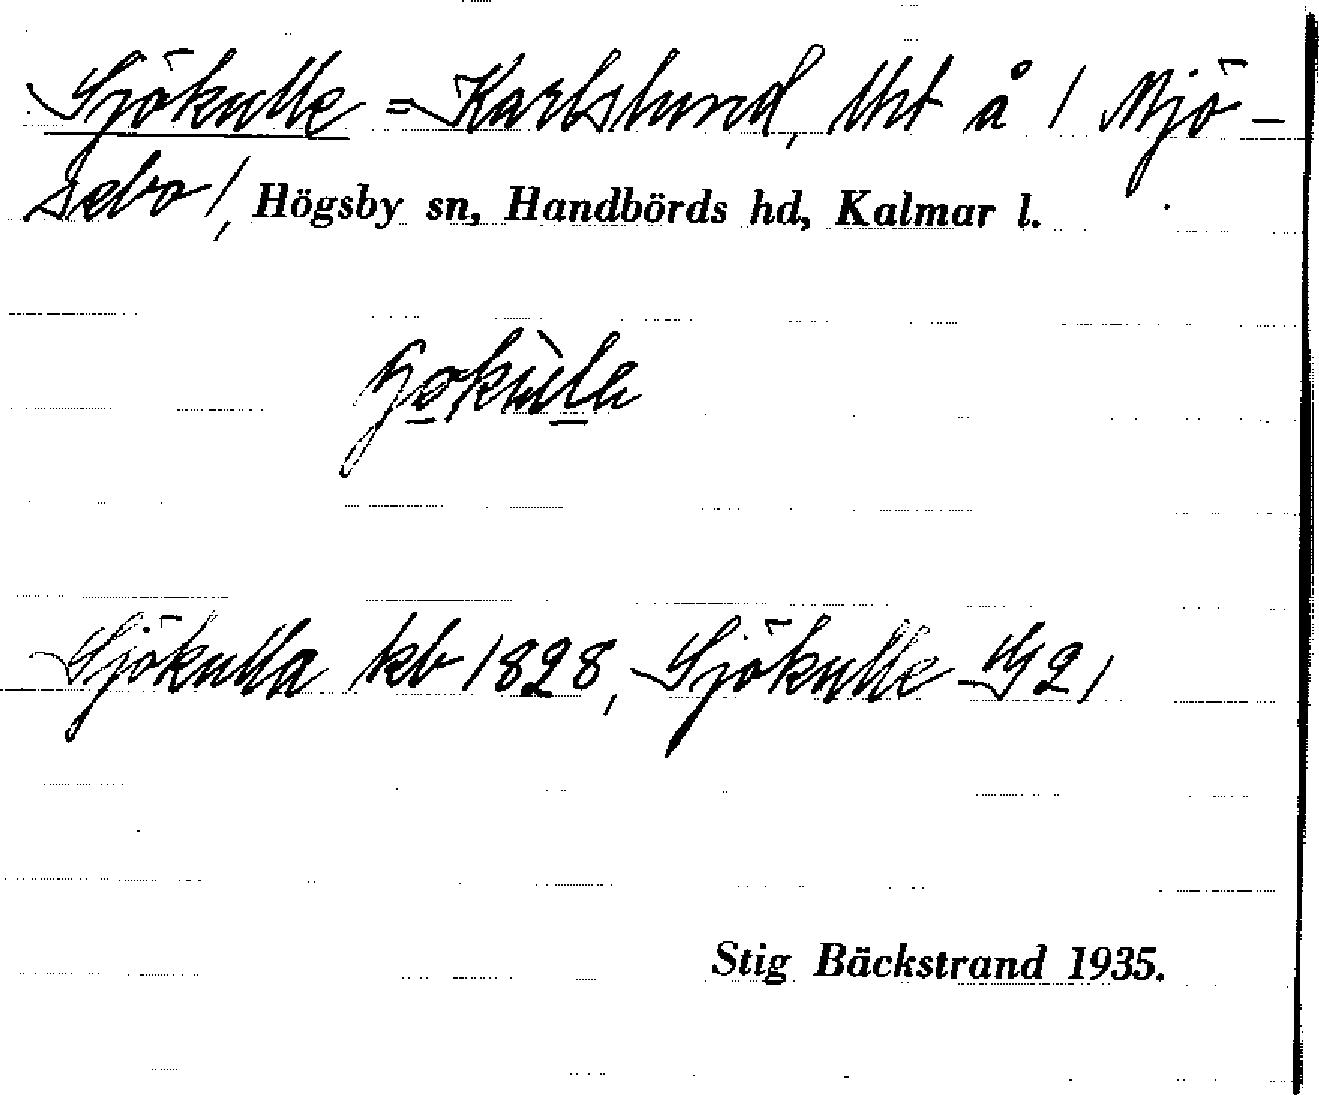 Sjökulle = Karlslund, lht å / Mjö-
sebo /, Högsby sn, Handbörds hd, Kalmar l.
Sjökulla kb 1828, Sjökulle G 21
Stig Bäckstrand 1935.